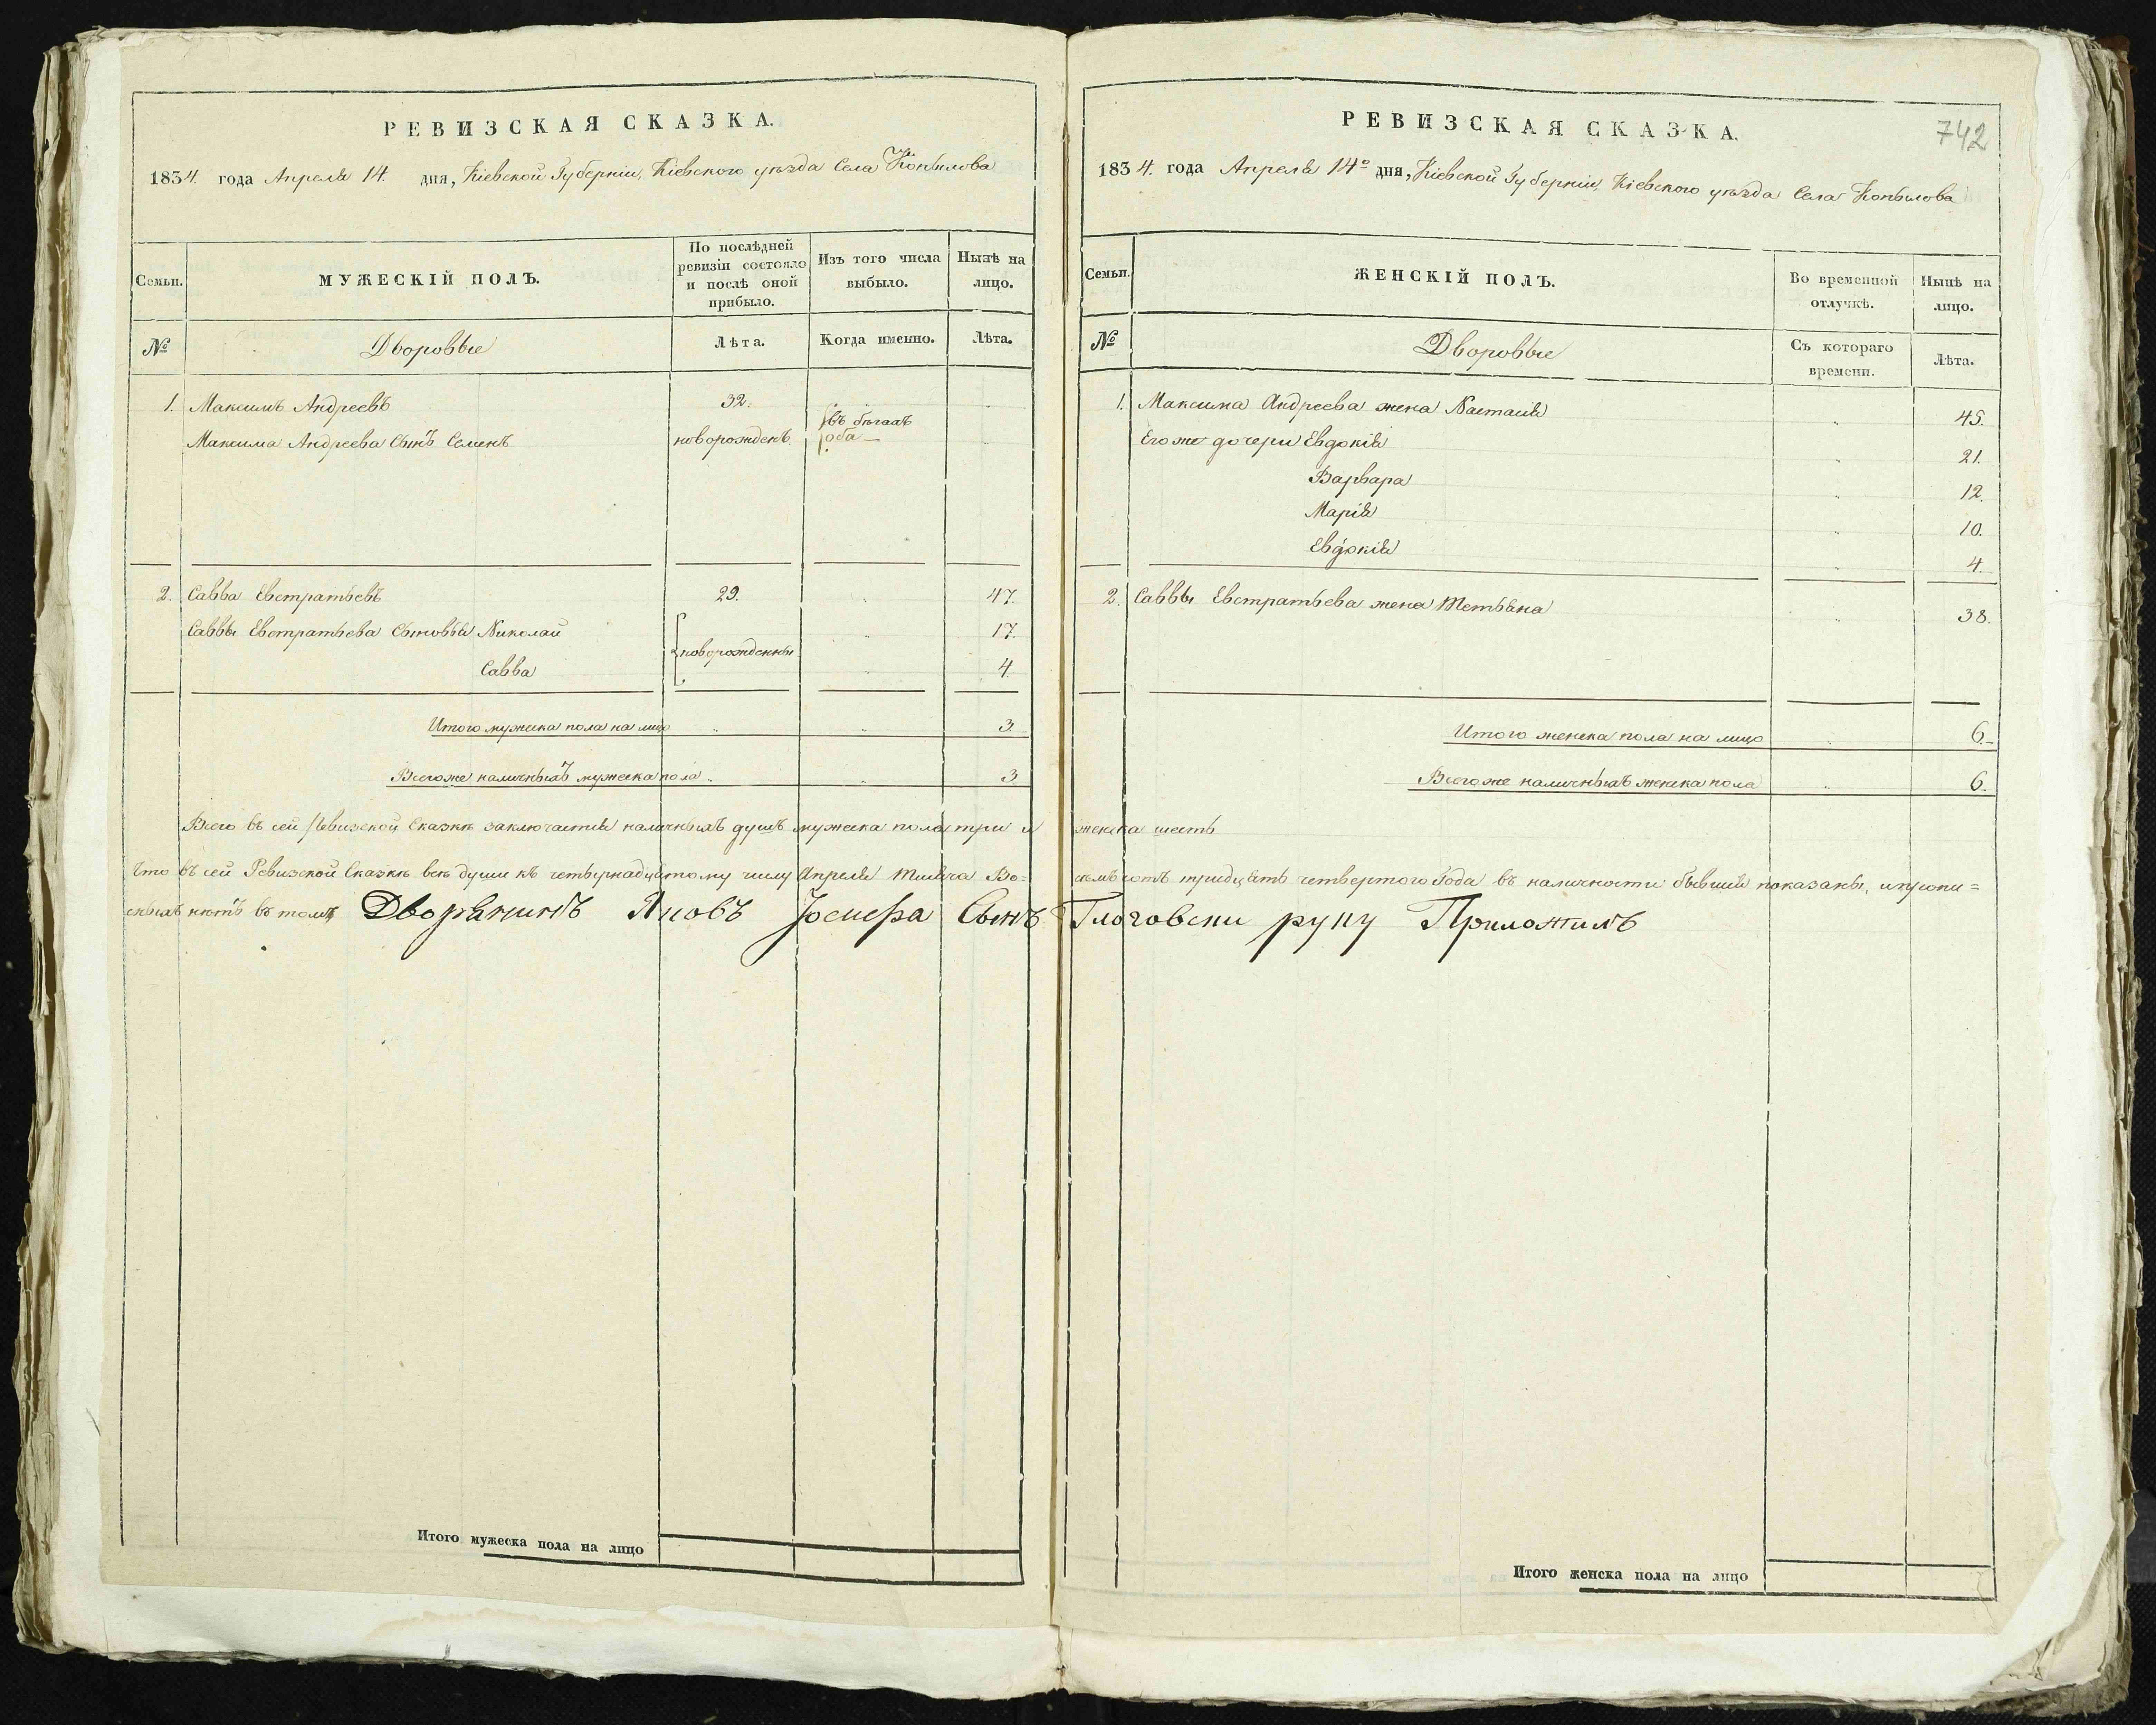 РЕВИЗСКАЯ СКАЗКА.
1834. года Апреля 14. дня, Кіевской Губерніи, Кіевского уѣзда Села Копылова
Семьи.
МУЖЕСКІЙ ПОЛЪ.
По послѣдней ревизіи состояло и послѣ оной прибыло.
Изъ того числа выбыло.
Нынѣ на лицо.
№
Дворовые
Лѣта.
Когда именно.
Лѣта.
1. Максимъ Андреевъ 32.
Максима Андреева Сынъ Семенъ новорожденъ
въ бѣгахъ
оба
2. Савва Евстратьевъ 29. 47.
Саввы Евстратьева Сыновья Николай новорожденны 17.
Савва 4.
Итого мужеска пола на лицо 3.
Всегоже наличныхъ мужеска пола 3
РЕВИЗСКАЯ СКАЗКА.
742
1834. года Апреля 14º дня, Кіевской Губерніи, Кіевского уѣзда Села Копылова
Семьи.
ЖЕНСКІЙ ПОЛЪ.
Во временной отлучкѣ.
Нынѣ на лицо.
№
Дворовые
Съ котораго времени.
Лѣта.
1. Максима Андреева жена Настасія 45.
Его же дочери Евдокія 21.
Варвара 12.
Марія 10.
Евдокія 4.
2. Саввы Евстратьева жена Тетьяна 38.
Итого женска пола на лицо 6.
Всегоже наличныхъ женска пола 6.
Всего въ сей Ревизской Сказкѣ заключается наличныхъ душъ мужеска пола три и женска шесть
Что въ сей Ревизской Сказкѣ всѣ души къ четырнадцатому числу Апреля Тысяча Во=семъ сотъ тридцять четвертого Года въ наличности бывшия показаны, и пропи=
сныхъ нѣтъ въ томъ Дворянинъ Яковъ Іосифа Сынъ Глоговски руку Приложилъ
Итого мужеска пола на лицо
Итого женска пола на лицо